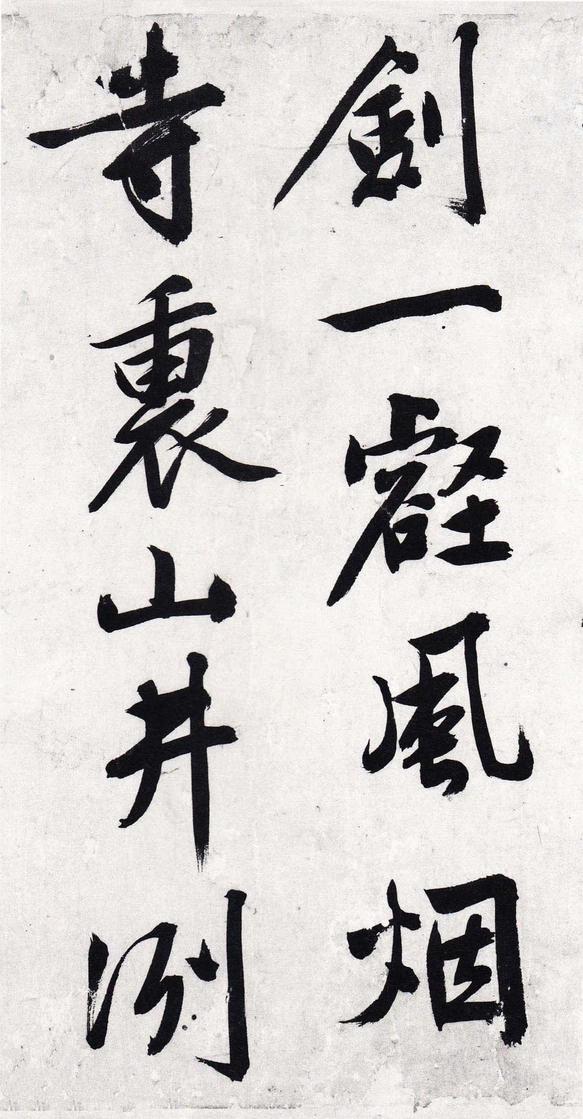 劍一壑風烟
寺裏山井冽